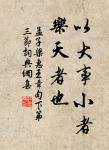 以大事小者
樂天者也
孟子梁惠王章句下第
三節詞典網集